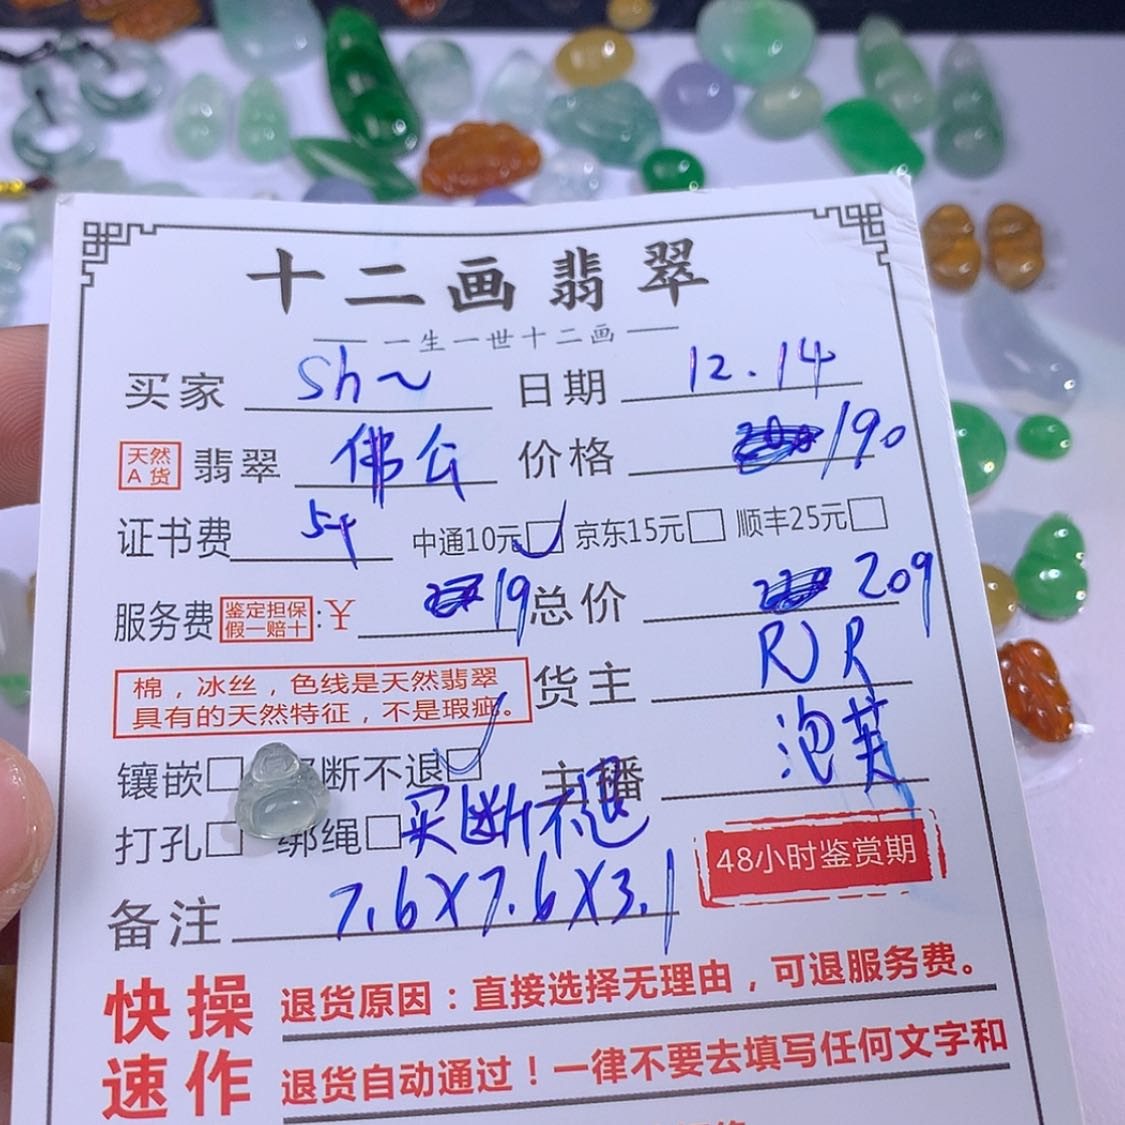 十二画翡翠
一生一世十二画
买家 sh~ 日期 12.14
天然A货 翡翠 佛公 价格 190
证书费 中通10元 京东15元 顺丰25元
服务费 鉴定担保 假一赔十 :¥ 19 总价 209
棉，冰丝，色线是天然翡翠
具有的天然特征，不是瑕疵。
货主 RJR
镶嵌 断不退 主播 泡芙
打孔 绑绳 买断不退
48小时鉴赏期
备注 7.6X7.6X3.1
快操速作
退货原因：直接选择无理由，可退服务费。
退货自动通过！一律不要去填写任何文字和